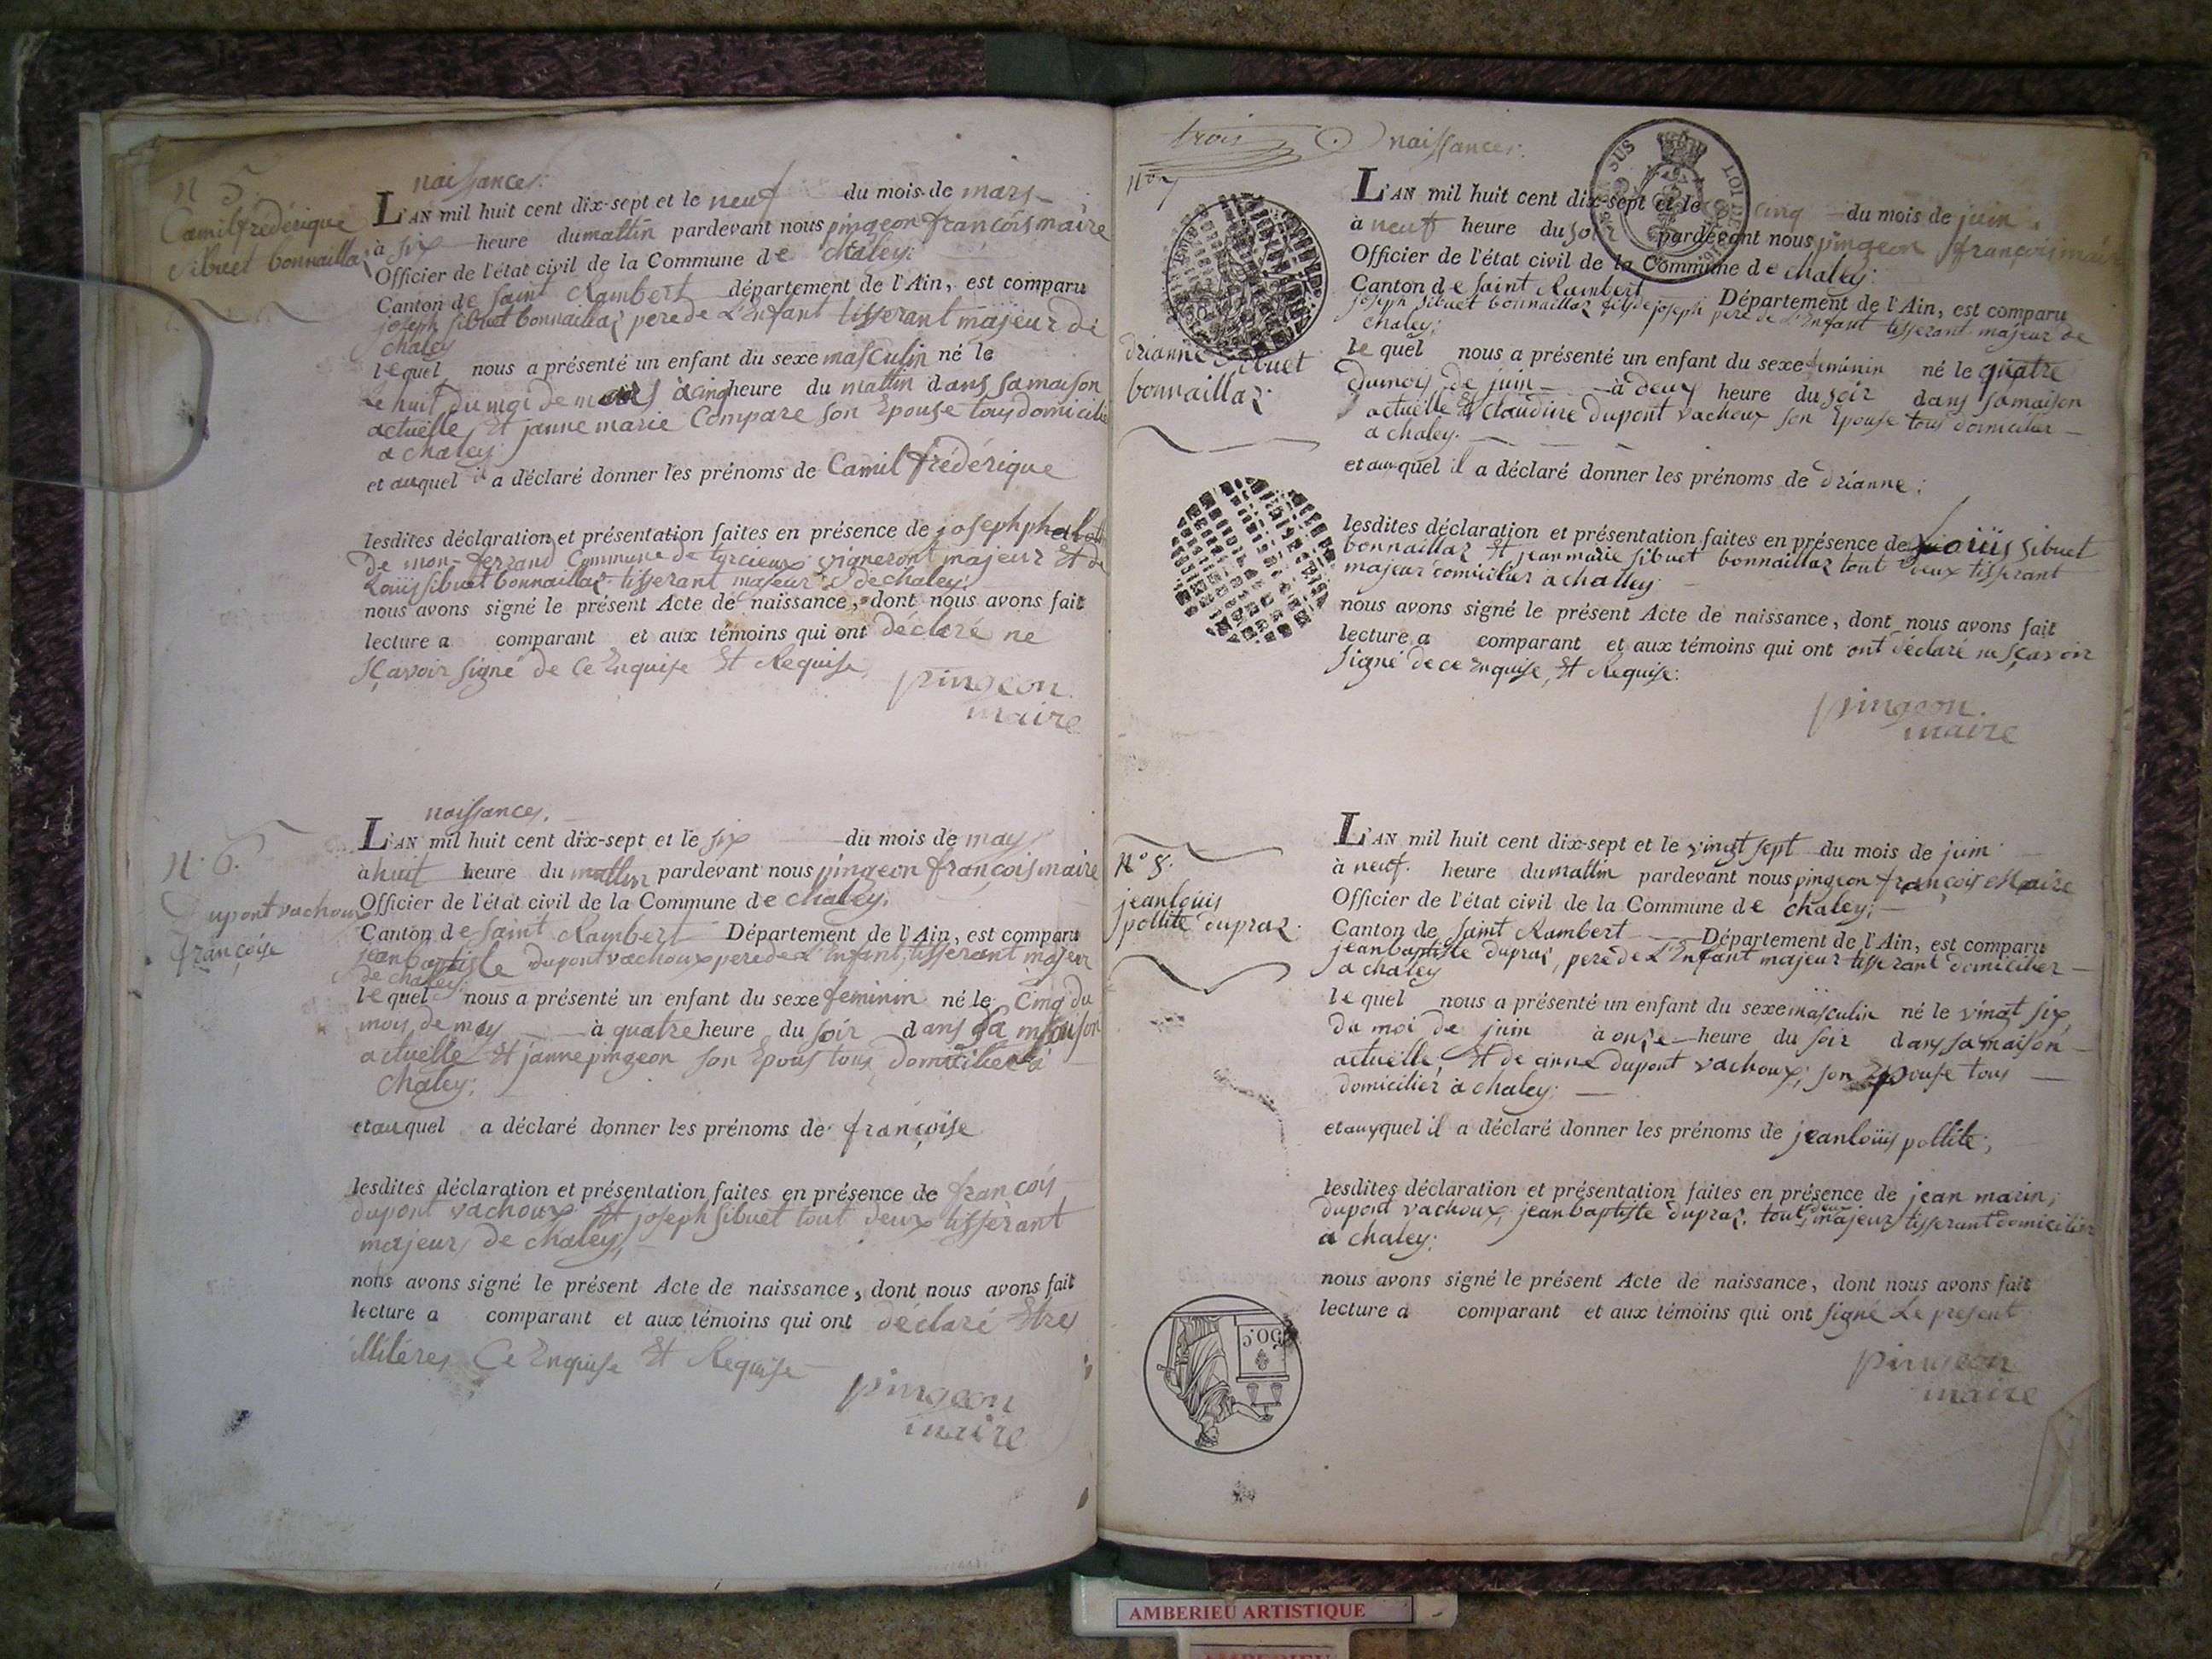 naissances.
N 5.
Camil frédérique
sibuet bonnaillaz
L'AN mil huit cent dix-sept et le neuf du mois de mars
à six heure du mattin pardevant nous pingeon françois maire
Officier de l'état civil de la Commune de chaley:
Canton de saint Rambert département de l'Ain, est comparu
joseph sibuet bonnaillaz pere de L'Enfant tisserant majeur de
chaley
lequel nous a présenté un enfant du sexe masculin né le
Le huit du moi de mars à cinq heure du mattin dans sa maison
actuelle, Et janne marie Compare son Epouse tous domicilie
a chaley
et auquel il a déclaré donner les prénoms de Camil frédérique
lesdites déclaration et présentation faites en présence de joseph
De mon-ferrand Commune de torcieux vigneront majeur Et de
Louis sibuet bonnaillaz tisserant majeur de chaley;
nous avons signé le présent Acte de naissance, dont nous avons fait
lecture a comparant et aux témoins qui ont déclaré ne
sçavoir signé de Ce Enquise Et Requise
pingeon
maire
naissances.
N. 6.
Dupont vachoux
françoise
L'AN mil huit cent dix-sept et le six du mois de may
à huit heure du mattin pardevant nous pingeon françois maire
Officier de l'état civil de la Commune de chaley.
Canton de saint Rambert Département de l'Ain, est comparu
jean baptiste dupont vachoux pere de L'Enfant, tisserant majeur
de chaley;
lequel nous a présenté un enfant du sexe feminin né le Cinq du
mois de may à quatre heure du soir dans sa maison
actuelle Et janne pingeon son Epous tous domicilier à
Chaley;
et auquel a déclaré donner les prénoms de françoise
lesdites déclaration et présentation faites en présence de françois
dupont vachoux Et joseph sibuet tout deux tisserant
majeur de chaley;
nous avons signé le présent Acte de naissance, dont nous avons fait
lecture a comparant et aux témoins qui ont déclaré Etres
illiteres Ce Enquise Et Requise
pingeon
maire
trois
naissances.
No 7
drianne sibuet
bonnaillaz
L'AN mil huit cent dix-sept et le cinq du mois de juin
à neuf heure du soir pardevant nous pingeon françois maire
Officier de l'état civil de la Commune de chaley:
Canton de saint Rambert Département de l'Ain, est comparu
joseph sibuet bonnaillaz fils de joseph pere de L'Enfant tisserant majeur de
chaley;
lequel nous a présenté un enfant du sexe feminin né le quatre
du mois de juin à deux heure du soir dans sa maison
actuelle Et claudine dupont vachoux son Epouse tous domicilier
a chaley.
et auquel il a déclaré donner les prénoms de drianne;
lesdites déclaration et présentation faites en présence de Louis sibuet
bonnaillaz Et jean marie sibuet bonnaillaz tout deux tisserant
majeur domicilier a challey
nous avons signé le présent Acte de naissance, dont nous avons fait
lecture a comparant et aux témoins qui ont ont déclaré ne sçavoir
signé de ce Enquise, Et Requise:
pingeon
maire
N° 8.
jean louis
pollite dupraz.
L'AN mil huit cent dix-sept et le vingt sept du mois de juin
à neuf. heure du mattin pardevant nous pingeon françois Maire
Officier de l'état civil de la Commune de chaley;
Canton de saint Rambert Département de l'Ain, est comparu
jean baptiste dupraz, pere de L'Enfant majeur tisserant domicilier
a chaley
lequel nous a présenté un enfant du sexe masculin né le vingt six
du moi de juin à onze heure du soir dans sa maison
actuelle, Et de anne dupont vachoux; son Epouse tous
domicilier à chaley;
et auquel il a déclaré donner les prénoms de jean louis pollite;
lesdites déclaration et présentation faites en présence de jean marin,
dupont vachoux, jean baptiste dupraz, tout deux majeur tisserant domicilier
a chaley;
nous avons signé le présent Acte de naissance, dont nous avons fait
lecture a comparant et aux témoins qui ont signé Le present
pingeon
maire
50 c
AMBERIEU ARTISTIQUE
AMBERIEU